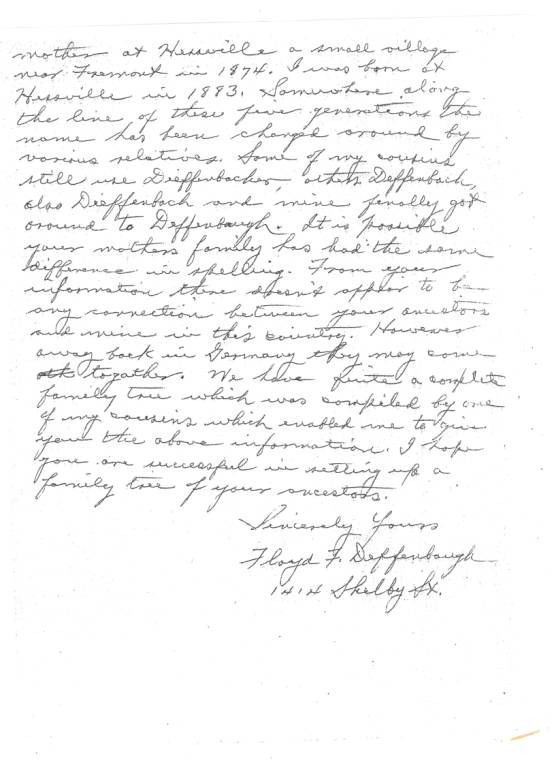 mother at Hessville a small village
near Fremont in 1874. I was born at
Hessville in 1883. Somewhere along
the line of these five generations the
name has been changed around by
various relatives. Some of my cousins
still use Dieffenbacher, others Deffenbach,
also Dieffenbach and mine finally got
around to Deffenbaugh. It is possible
your mothers family has had the same
difference in spelling. From your
information there doesn't appear to be
any connection between your ancestors
and mine in this country. However
away back in Germany they may come
together. We have quite a complete
family tree which was compiled by one
of my cousins which enabled me to give
you the above information. I hope
you are successful in setting up a
family tree of your ancestors.
Sincerely Yours
Floyd F. Deffenbaugh
1414 Shelby St.